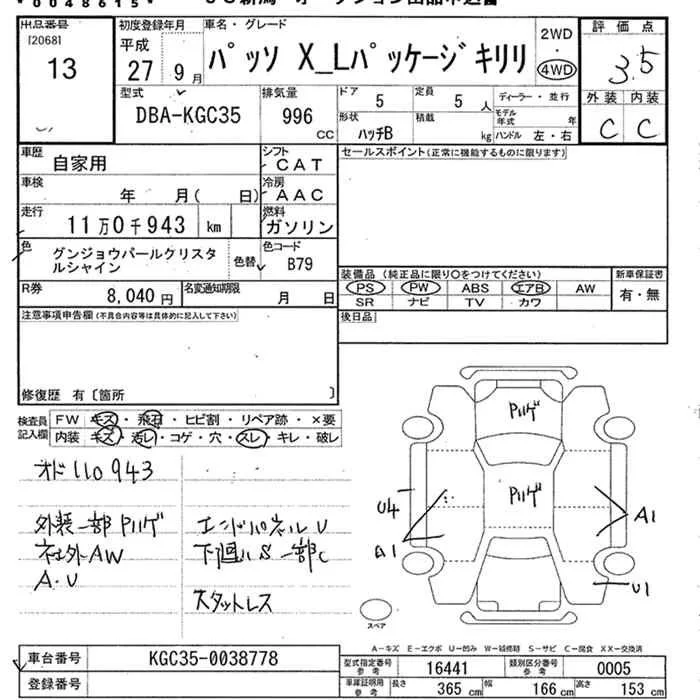 *0048615*
出品番号 初度登録年月 車名・グレード 2WD 評価点
[2068] 平成 パッソ X_Lパッケージキリリ ・
13 27年 9月 4WD 3.5
型式 排気量 ドア 5 定員 5人 ディーラー・並行 外装 内装
DBA-KGC35 996 CC 形状 ハッチB 積載 kg モデル年式 年 ハンドル 左・右 C C
車歴 自家用 シフト CAT セールスポイント(正常に機能するものに限ります)
車検 年 月( 日) 冷房 AAC
走行 11万0千943 km 燃料 ガソリン
色 グンジョウパールクリスタルシャイン 色替 色コード B79
装備品(純正品に限り○をつけてください) 新車保証書
R券 8,040円 名変通知期限 月 日 PS PW ABS エアB AW 有・無
SR ナビ TV カワ
注意事項申告欄(不具合内容等は具体的に記入して下さい) 後日品
修復歴 有〔箇所 〕
検査員記入欄 FW キズ・飛石・ヒビ割・リペア跡・×要
内装 キズ・汚レ・コゲ・穴・スレ・キレ・破レ
オド110943
外装一部Pハゲ エンドパネルU
社外AW 下廻りS一部C
A.U
スタットレス
Pハゲ
Pハゲ
U4 A1
A1 U1
スペア
A-キズ E-エクボ U-凹み W-補修跡 S-サビ C-腐食 XX-交換済
車台番号 KGC35-0038778 型式指定番号 参考 16441 類別区分番号 参考 0005
登録番号 車庫証明用 参考 長さ 365cm 幅 166cm 高さ 153cm